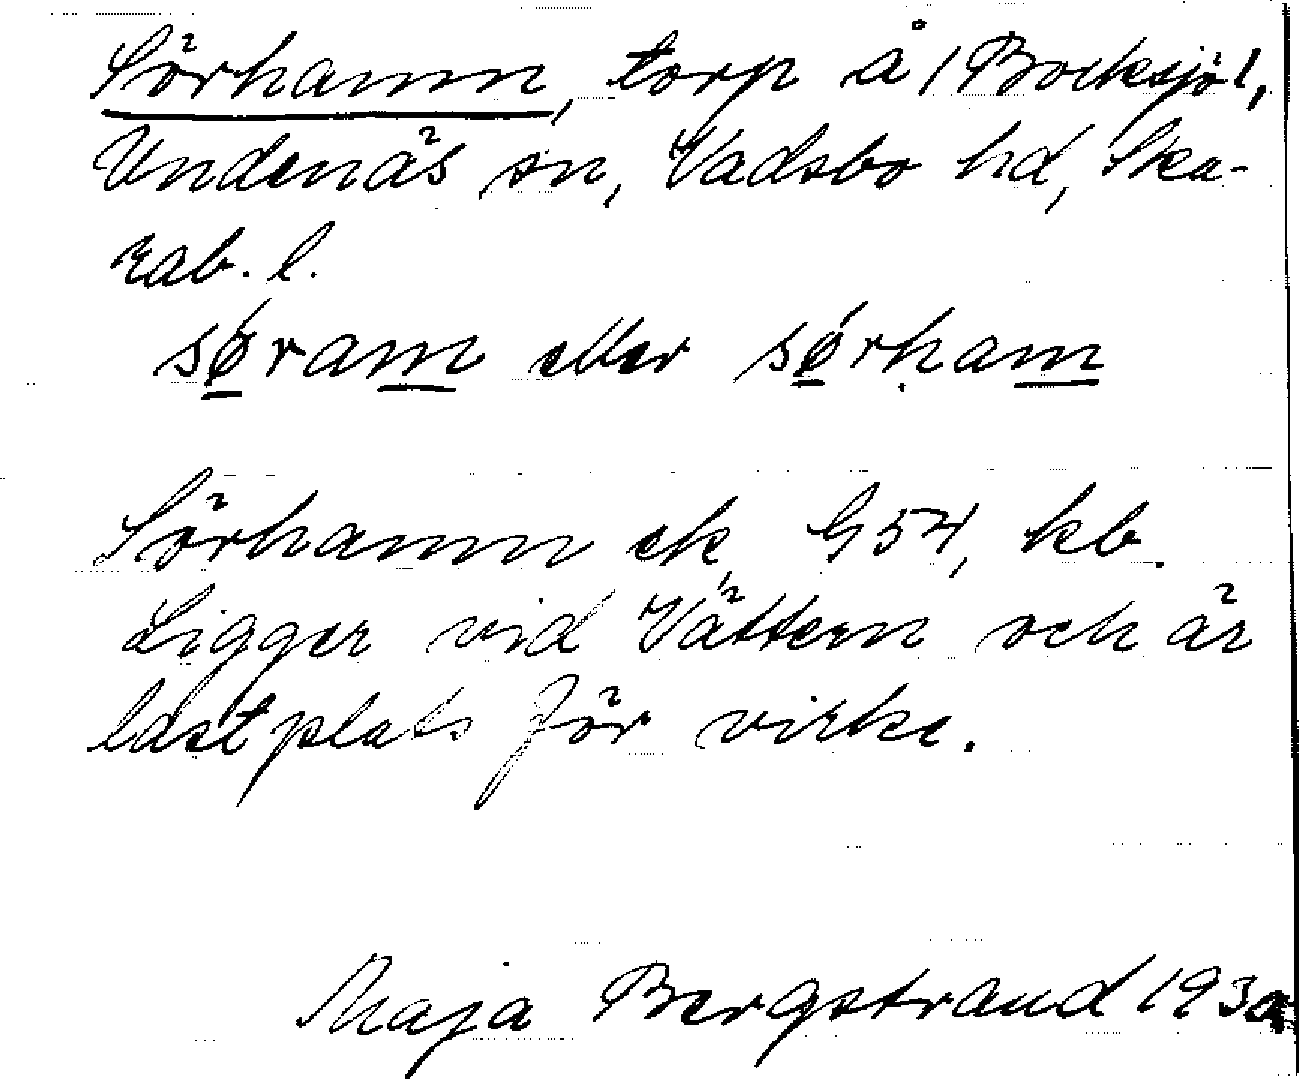 Sörhamn, torp å /Bocksjö/,
Undenäs sn, Vadsbo hd, Ska-
rab. l.
søram eller sørham
Sörhamn ek, G54, kb.
Ligger vid Vättern och är
lastplats för virke.
Maja Bergstrand